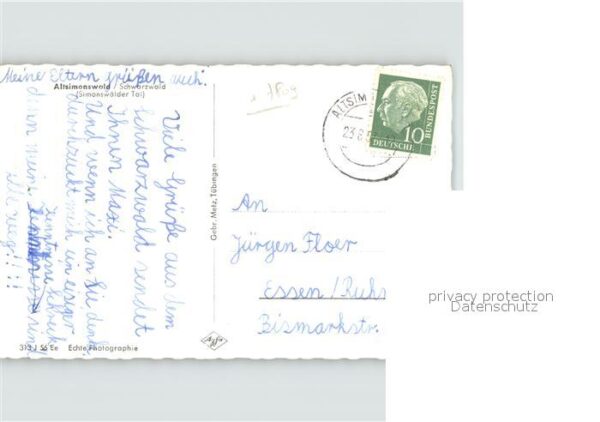 Meine Eltern grüßen auch.
Altsimonswald / Schwarzwald
(Simonswälder Tal)
Viele Grüße aus dem
Schwarzwald sendet
Ihnen Maxi.
Und wenn ich an Sie denke
durchzuckt mich ein eisiger
Schreck
denn meine
sind
alle weg!!!!
Gebr. Metz, Tübingen
ALTSIM
23.8.5
10
DEUTSCHE
BUNDESPOST
An
Jürgen Floer
Essen/Ruhr
Bismarkstr.
privacy protection
Datenschutz
313 J 56 Ee
Echte Photographie
Agfa